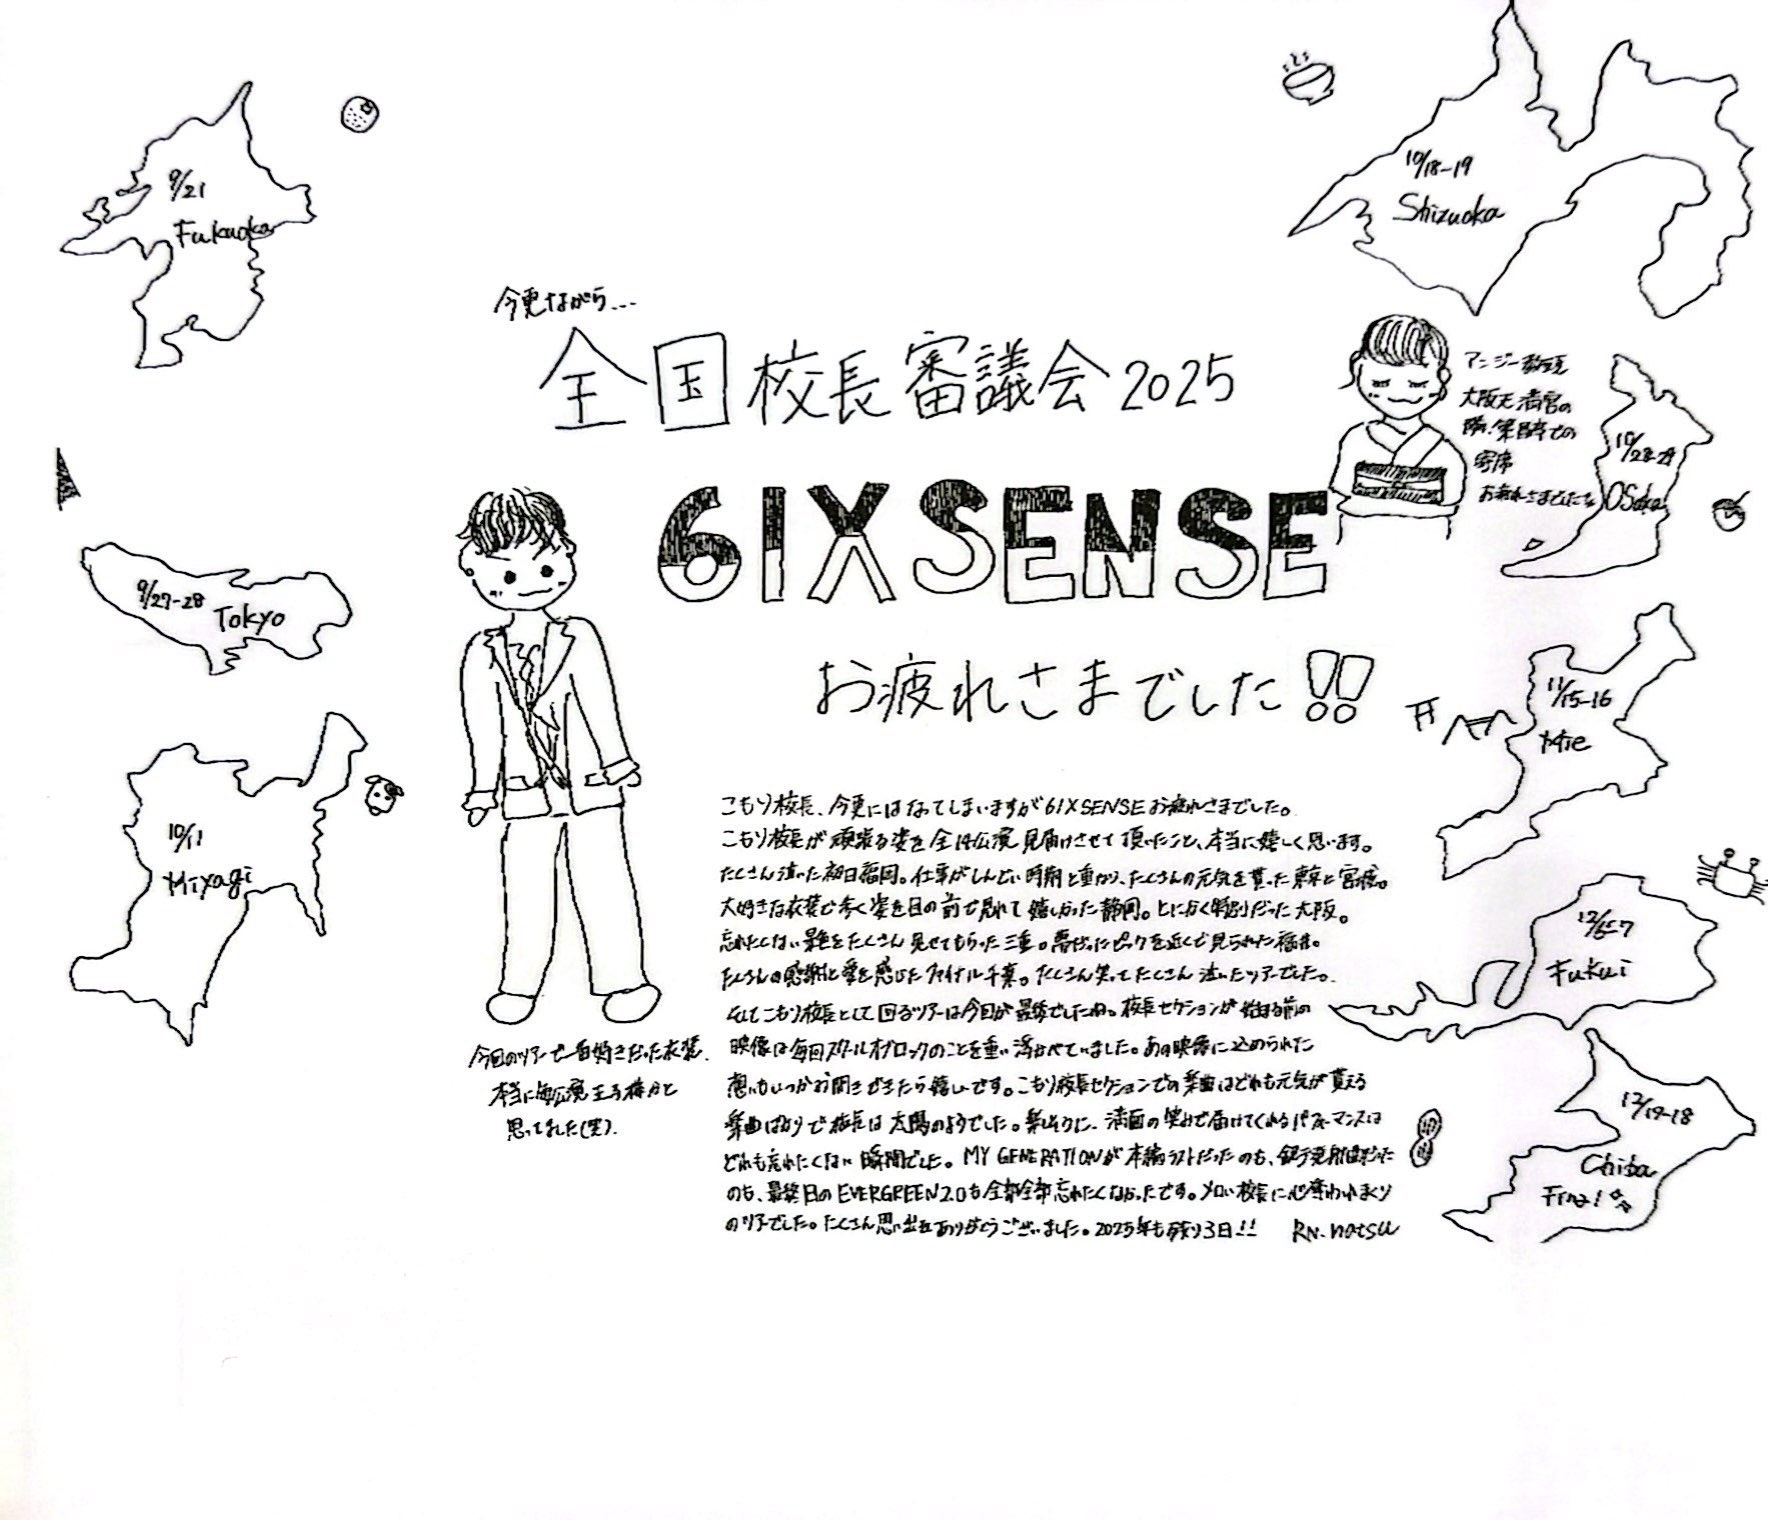 今更ながら...
全国校長審議会2025
6IXSENSE
お疲れさまでした!!
9/21
Fukuoka
9/27-28
Tokyo
10/11
Miyagi
10/18-19
Shizuoka
アンジー教頭
大阪天満宮の
隣、繁昌亭での
寄席
お疲れさまでした
Osaka
11/15-16
Mie
12/6-7
Fukui
Chiba
Final
今回のツアーで一番好きだった衣装。
本当に毎公演王子様だと
思ってました(笑)。
こもり校長、今更にはなってしまいますが6IXSENSEお疲れさまでした。
こもり校長が頑張る姿を全14公演見届けさせて頂いたこと、本当に嬉しく思います。
たくさん泣いた初日福岡。仕事がしんどい時期と重なり、たくさんの元気を貰った東京と宮城。
大好きな衣装で歩く姿を目の前で見れて嬉しかった静岡。とにかく特別だった大阪。
忘れたくない景色をたくさん見せてもらった三重。喜びのピークを近くで見られた福井。
たくさんの感謝と愛を感じたファイナル千葉。たくさん笑ってたくさん泣いたツアーでした。
そしてこもり校長として回るツアーは今回が最後でしたね。校長セクションが始まる前の
映像は毎回スクールオブロックのことを重い浮かべていました。あの映像に込められた
想いもいつかお聞きできたら嬉しいです。こもり校長セクションでの楽曲はどれも元気が貰える
楽曲ばかりで校長は太陽のようでした。楽しそうに、満面の笑みで届けてくれるパフォーマンスは
どれも忘れたくない瞬間でした。MY GENERATIONが本編ラストだったのも、
のも、最終日のEVERGREEN2.0も全部全部忘れたくなかったです。メロい校長に心奪われまくり
のツアーでした。たくさん思い出をありがとうございました。2025年も残り3日!! RN.natsu